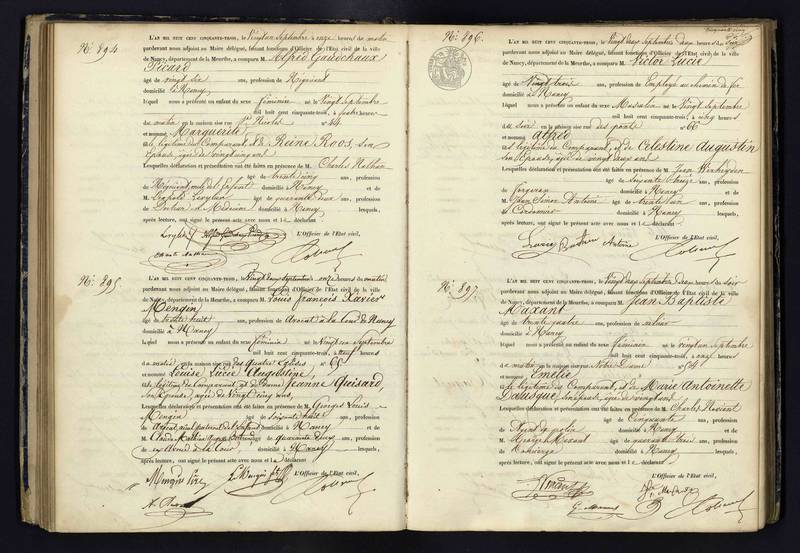 No: 894
L'an mil huit cent cinquante-trois, le Vingt un Septembre à onze heures du matin
pardevant nous adjoint au Maire délégué, faisant fonctions d'Officier de l'Etat civil de la ville
de Nancy, département de la Meurthe, a comparu M. Alfred Gaudchaux
Picard
âgé de vingt six ans, profession de Négociant
domicilié à Nancy
lequel nous a présenté un enfant du sexe féminin né le Vingt Septembre
mil huit cent cinquante-trois, à quatre heures
du matin en la maison sise rue St. Nicolas n° 44
et nommé Marguerite
légitime du Comparant, et de Reine Roos, son
épouse, âgée de vingt un ans
Lesquelles déclaration et présentation ont été faites en présence de M. Charles Nathan
âgé de trente cinq ans, profession
de Négociant domicilié à Nancy et de
M. Léopold âgé de quarante deux ans, profession
de Docteur en Médecine domicilié à Nancy lesquels,
après lecture, ont signé le présent acte avec nous et le déclarant
L'Officier de l'Etat civil,
No: 895
L'an mil huit cent cinquante-trois, le Vingt deux Septembre onze heures du matin
pardevant nous adjoint au Maire délégué, faisant fonctions d'Officier de l'Etat civil de la ville
de Nancy, département de la Meurthe, a comparu M. Louis François Xavier
Mengin
âgé de trente huit ans, profession de Avocat à la Cour de Nancy
domicilié à Nancy
lequel nous a présenté un enfant du sexe féminin né le Vingt un Septembre
mil huit cent cinquante-trois, à heures
du matin en la maison sise rue des Quatre Eglises n°
et nommé Louise Lucie Augustine
légitime du Comparant, et de Jeanne Quisard,
son épouse, âgée de Vingt cinq ans,
Lesquelles déclaration et présentation ont été faites en présence de M. Georges Louis
Mengin âgé de soixante huit ans, profession
de Avocat domicilié à Nancy et de
M. Claude âgé de quarante deux ans, profession
de domicilié à Nancy lesquels,
après lecture, ont signé le présent acte avec nous et le déclarant
L'Officier de l'Etat civil,
Mengin père
No: 896
L'an mil huit cent cinquante-trois, le Vingt deux Septembre deux heures du soir
pardevant nous adjoint au Maire délégué, faisant fonctions d'Officier de l'Etat civil de la ville
de Nancy, département de la Meurthe, a comparu M. Victor Lucie
âgé de Vingt trois ans, profession de Employé au chemin de fer
domicilié à Nancy
lequel nous a présenté un enfant du sexe Masculin né le Vingt Septembre
mil huit cent cinquante-trois, à cinq heures
du soir en la maison sise rue des ponts n° 66
et nommé Alfred
légitime du Comparant, et de Celestine Augustin
son épouse, âgée de vingt deux ans
Lesquelles déclaration et présentation ont été faites en présence de M. Jean
âgé de soixante treize ans, profession
de domicilié à Nancy et de
M. Jean Antoine âgé de trente huit ans, profession
de Cordonnier domicilié à Nancy lesquels,
après lecture, ont signé le présent acte avec nous et le déclarant
L'Officier de l'Etat civil,
Antoine
No: 897
L'an mil huit cent cinquante-trois, le Vingt deux Septembre deux heures du soir
pardevant nous adjoint au Maire délégué, faisant fonctions d'Officier de l'Etat civil de la ville
de Nancy, département de la Meurthe, a comparu M. Jean Baptiste
Maxant
âgé de trente quatre ans, profession de sellier
domicilié à Nancy
lequel nous a présenté un enfant du sexe féminin né le vingt un Septembre
mil huit cent cinquante-trois, à onze heures
du matin en la maison sise rue Notre Dame n° 54
et nommé Emélie
légitime du Comparant, et de Marie Antoinette
son épouse, âgée de vingt ans
Lesquelles déclaration et présentation ont été faites en présence de M. Charles
âgé de Cinquante ans, profession
de Agent de police domicilié à Nancy et de
M. George Maxant âgé de quarante trois ans, profession
de domicilié à Nancy lesquels,
après lecture, ont signé le présent acte avec nous et le déclarant
L'Officier de l'Etat civil,